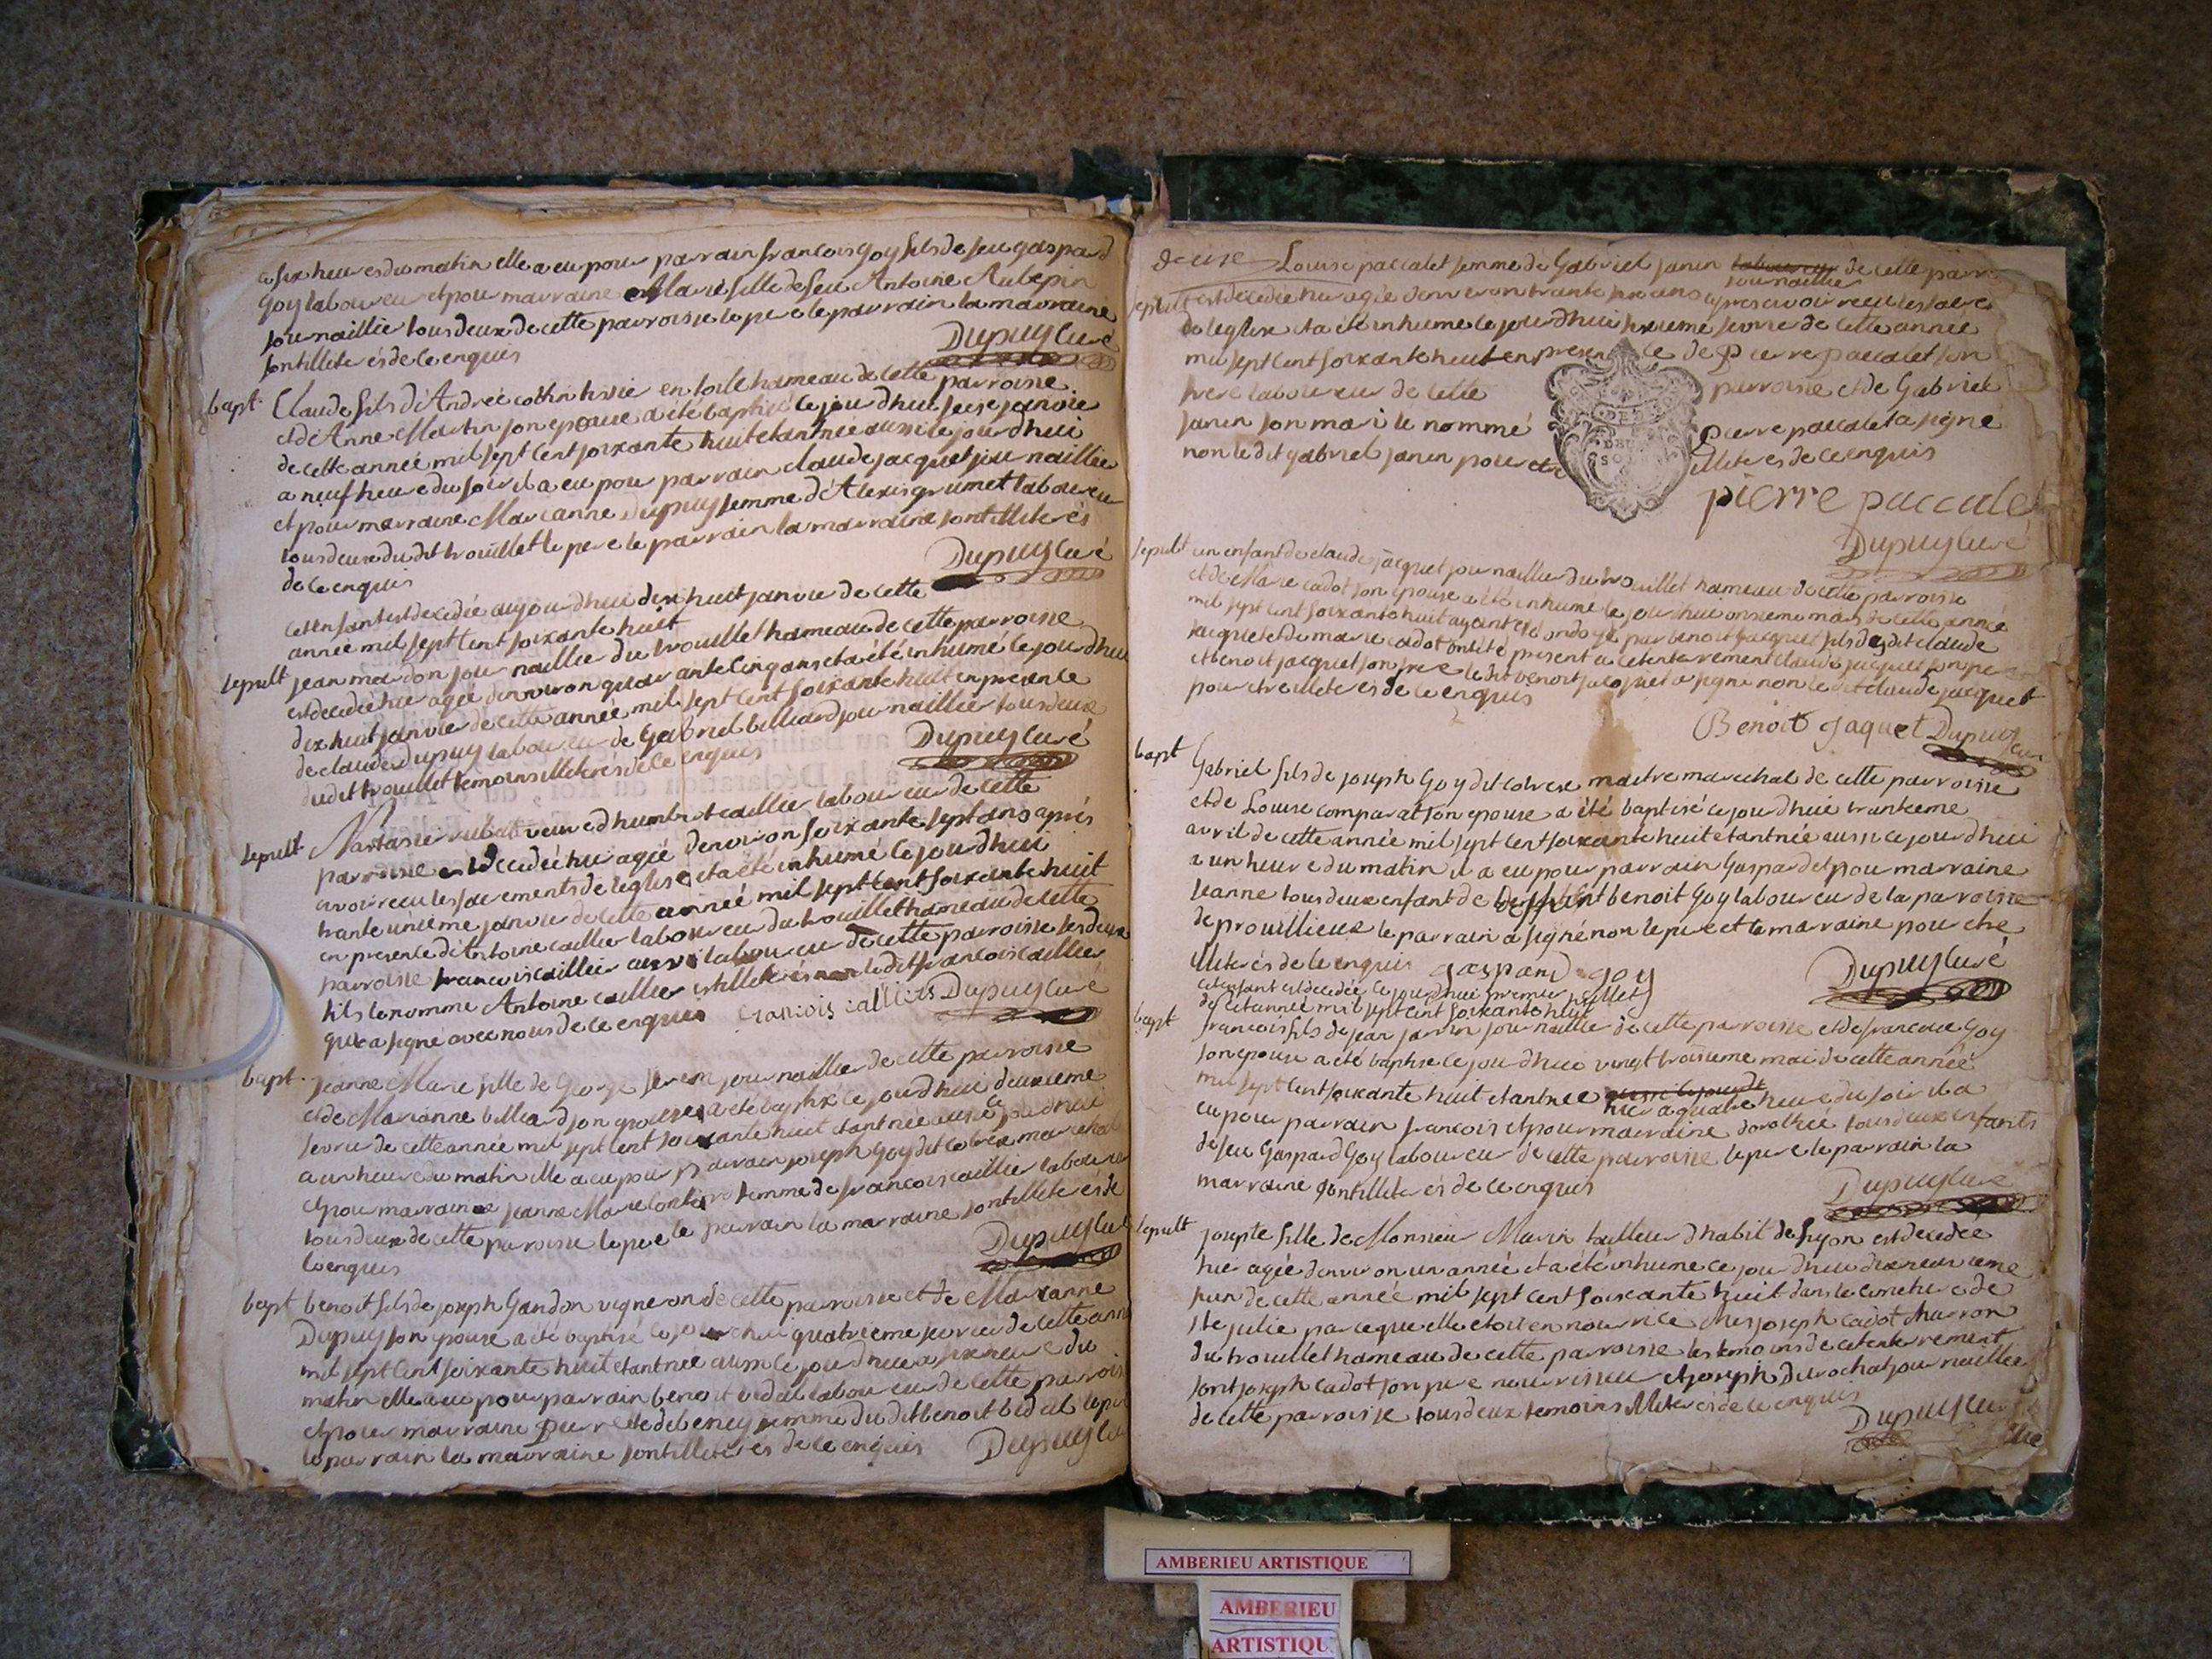 a six heures du matin elle a eu pour parrain francois Goy fils de feu gaspard
Goy laboureur et pour marraine Marie fille de feu Antoine Aubepin
journaillier tous deux de cette parroisse le pere le parrain la marraine
sont illiterés de ce enquis Dupuy Curé
bapt. Claude fils d'André en hameau de cette parroisse
et d'Anne Martin son epouse a été baptisé ce jourd'hui seize janvie
de cette année mil sept cent soixante huit etant née aussi ce jourd'hui
a neuf heure du soir il a eu pour parrain claude jacquet journaillier
et pour marraine Marianne Dupuy femme d'Alexis grumet laboureur
tous deux du dit trouillet le pere le parrain la marraine sont illiterés
de ce enquis Dupuy Curé
cet enfant est decedée aujourdhui dix huit janvie de cette
année mil sept cent soixante huit
sepult jean mardon journaillier du trouillet hameau de cette parroisse
est decedé hier agée d'environ quarante cinq ans et a été inhumé ce jourdhui
dix huit janvie de cette année mil sept cent soixante huit en presence
de claude Dupuy laboureur de Gabriel billiard journaillier tous deux
dudit trouillet temoins illiterés de ce enquis Dupuy Curé
sepult Nastasie veuve d'humbert caillier laboureur de cette
parroisse est decedée hier agée d'environ soixante sept ans aprés
avoir recu les sacrements de l'eglise et a été inhumé ce jourdhui
trante unieme janvie de cette année mil sept cent soixante huit
en presence d'Antoine caillier laboureur du trouillet hameau de cette
parroisse francois caillier aussi laboureur de cette parroisse ses deux
fils le nomme Antoine caillier illiterés non le dit francois caillier
qui a signé avec nous de ce enquis francois calliers Dupuy Curé
bapt. jeanne Marie fille de George journaillier de cette parroisse
et de Marianne billiard son epouse a été baptisé ce jourd'hui deuxieme
fevrie de cette année mil sept cent soixante huit etant née aussi ce jourdhui
a un heure du matin elle a eu pour parrain joseph Goy dit marechal
et pour marraine jeanne Marie femme de francois caillier laboureur
tous deux de cette parroisse le pere le parrain la marraine sont illiterés de
ce enquis Dupuy Curé
bapt benoit fils de joseph Gandon vigneron de cette parroisse et de Marianne
Dupuy son epouse a été baptisé ce jourdhui quatrieme fevrier de cette année
mil sept cent soixante huit etant née aussi ce jourdhui a six heure du
matin elle a eu pour parrain benoit bidal laboureur de cette parroisse
et pour marraine femme du dit benoit bidal le pere
le parrain la marraine sont illiterés de ce enquis Dupuy Curé
Louise paccalet femme de Gabriel janin laboureur de cette parroisse
journaillier
sepult est decedée hier agée d'environ trante ans apres avoir recu les sacre
de leglise et a été inhumé ce jourdhui fevrie de cette année
mil sept cent soixante huit en presence de Pierre paccalet son
frere laboureur de cette parroisse et de Gabriel
janin son mari le nommé Pierre paccalet a signé
non le dit gabriel janin pour etre illiterés de ce enquis
pierre paccalet
Dupuy Curé
sepult un enfant de claude jacquet journaillier du trouillet hameau de cette parroisse
et de Marie cadot son epouse a été inhumé le jourdhui onsieme mars de cette année
mil sept cent soixante huit ayant eté ondoyé par benoit jacquet fils du dit claude
jacquet et de marie cadot ont été present a cet enterrement claude jacquet son pere
et benoit jacquet son frere le dit benoit jacquet a signé non le dit claude jacquet
pour etre illiterés de ce enquis
Benoit jaquet Dupuy Curé
bapt Gabriel fils de joseph Goy dit maitre marechal de cette parroisse
et de Louise comparat son epouse a été baptisé ce jourdhui trantieme
avril de cette année mil sept cent soixante huit etant née aussi ce jourdhui
a un heure du matin il a eu pour parrain Gaspard et pour marraine
jeanne tous deux enfant de benoit Goy laboureur de la parroisse
de prouillieux le parrain a signé non le pere et la marraine pour etre
illiterés de ce enquis gaspard goy Dupuy Curé
cet enfant est decedée ce jourdhui premier juillet
de cet année mil sept cent soixante huit
bapt francois fils de jean janin journaillier de cette parroisse et de francoise Goy
son epouse a été baptise ce jourdhui vingt troisieme mai de cette année
mil sept cent soixante huit etant née aussi ce jourdh
hier a quatre heure du soir il a
eu pour parrain francois et pour marraine dorothée tous deux enfants
de feu Gaspard Goy laboureur de cette parroisse le pere le parrain la
marraine sont illiterés de ce enquis Dupuy Curé
sepult josepte fille de Monsieur Marin tailleur d'habit de Lyon est decedée
hier agée d'environ un année et a été inhume ce jourdhui dix neuvieme
juin de cette année mil sept cent soixante huit dans le cimetiere de
ste julie parceque elle etoit en nourrice ches joseph cadot charron
du trouillet hameau de cette parroisse les temoins de cet enterrement
sont joseph cadot son pere nourrisseur et joseph Durochat journaillier
de cette parroisse tous deux temoins illiterés de ce enquis
Dupuy Curé
AMBERIEU ARTISTIQUE
AMBERIEU
ARTISTIQU